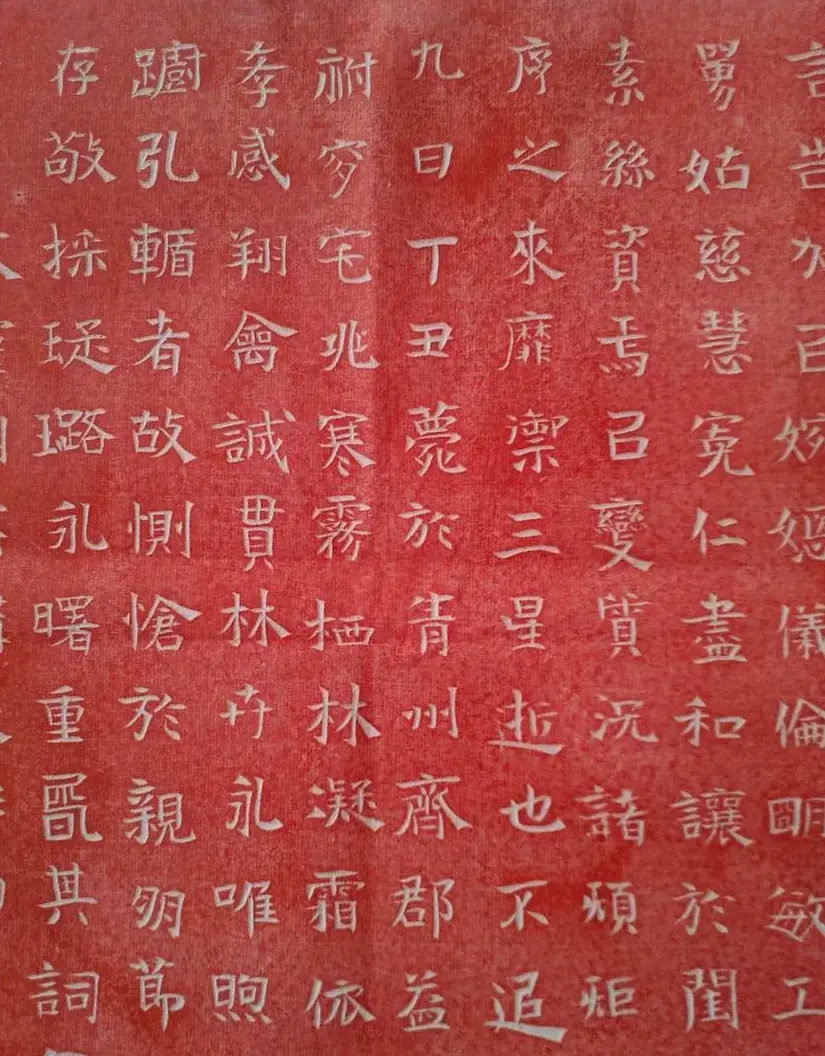 言告百儀倫明敏工
舅姑慈慧寬仁盡和讓於閨
素絲資焉召變質況諸煩炬
序之來靡禦三星逝也不追
九日丁丑薨於青州齊郡益
祔窆宅兆寒霧栖林凝霜依
孝感翔禽誠貫林卉永唯煦
躕孔輴者故惻愴於親朋節
存敬採琁璐永曙重其詞